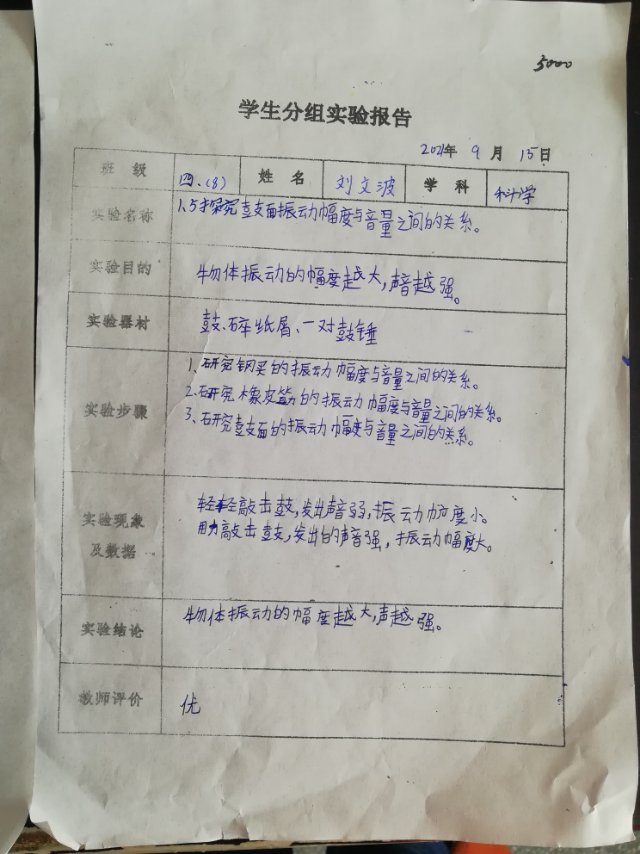 5000
学生分组实验报告
2021年 9 月 15日
班 级 四.(8) 姓 名 刘文波 学 科 科学
实验名称 1.5探究鼓面振动幅度与音量之间的关系。
实验目的 物体振动的幅度越大,声音越强。
实验器材 鼓、碎纸屑、一对鼓锤
实验步骤
1、研究钢尺的振动幅度与音量之间的关系。
2、研究橡皮筋的振动幅度与音量之间的关系。
3、研究鼓面的振动幅度与音量之间的关系。
实验现象及数据
轻轻敲击鼓,发出声音弱,振动幅度小。
用力敲击鼓,发出的声音强,振动幅度大。
实验结论 物体振动的幅度越大,声越强。
教师评价 优